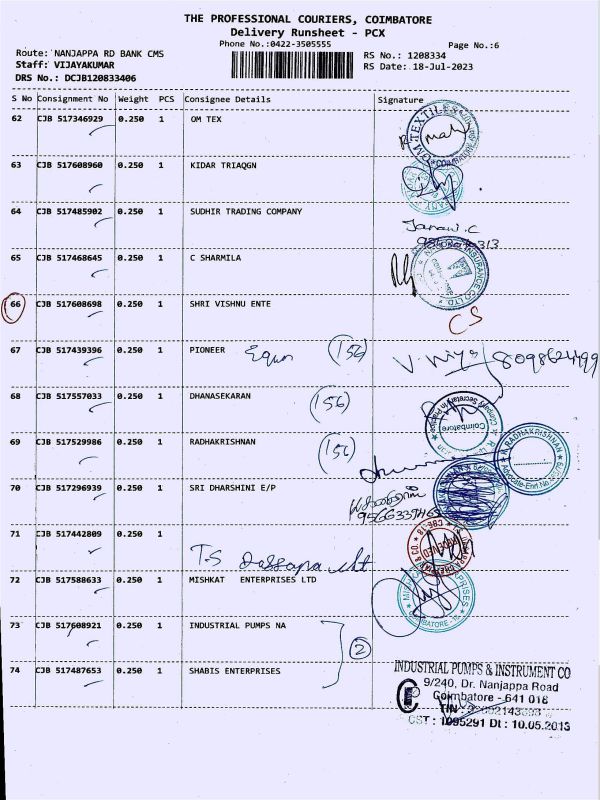 THE PROFESSIONAL COURIERS, COIMBATORE
Delivery Runsheet - PCX
Phone No.:0422-3505555
Page No.:6
Route: NANJAPPA RD BANK CMS
RS No.: 1208334
Staff: VIJAYAKUMAR
RS Date: 18-Jul-2023
DRS No.: DCJB120833406
S No Consignment No Weight PCS Consignee Details Signature
62 CJB 517346929 0.250 1 OM TEX
OM TEXTILES
63 CJB 517608960 0.250 1 KIDAR TRIAQGN
64 CJB 517485902 0.250 1 SUDHIR TRADING COMPANY
65 CJB 517468645 0.250 1 C SHARMILA
INSURANCE CO LTD
66 CJB 517608698 0.250 1 SHRI VISHNU ENTE
CS
67 CJB 517439396 0.250 1 PIONEER (156) 8098624499
68 CJB 517557033 0.250 1 DHANASEKARAN (156)
Company Secretary in Practice
Coimbatore
69 CJB 517529986 0.250 1 RADHAKRISHNAN (156)
RADHAKRISHNAN
70 CJB 517296939 0.250 1 SRI DHARSHINI E/P
71 CJB 517442809 0.250 1
T-S
72 CJB 517588633 0.250 1 MISHKAT ENTERPRISES LTD
73 CJB 517608921 0.250 1 INDUSTRIAL PUMPS NA
(2)
74 CJB 517487653 0.250 1 SHABIS ENTERPRISES
INDUSTRIAL PUMPS & INSTRUMENT CO
9/240, Dr. Nanjappa Road
Coimbatore - 641 018
TIN
CST : 1095291 Dt : 10.05.2013